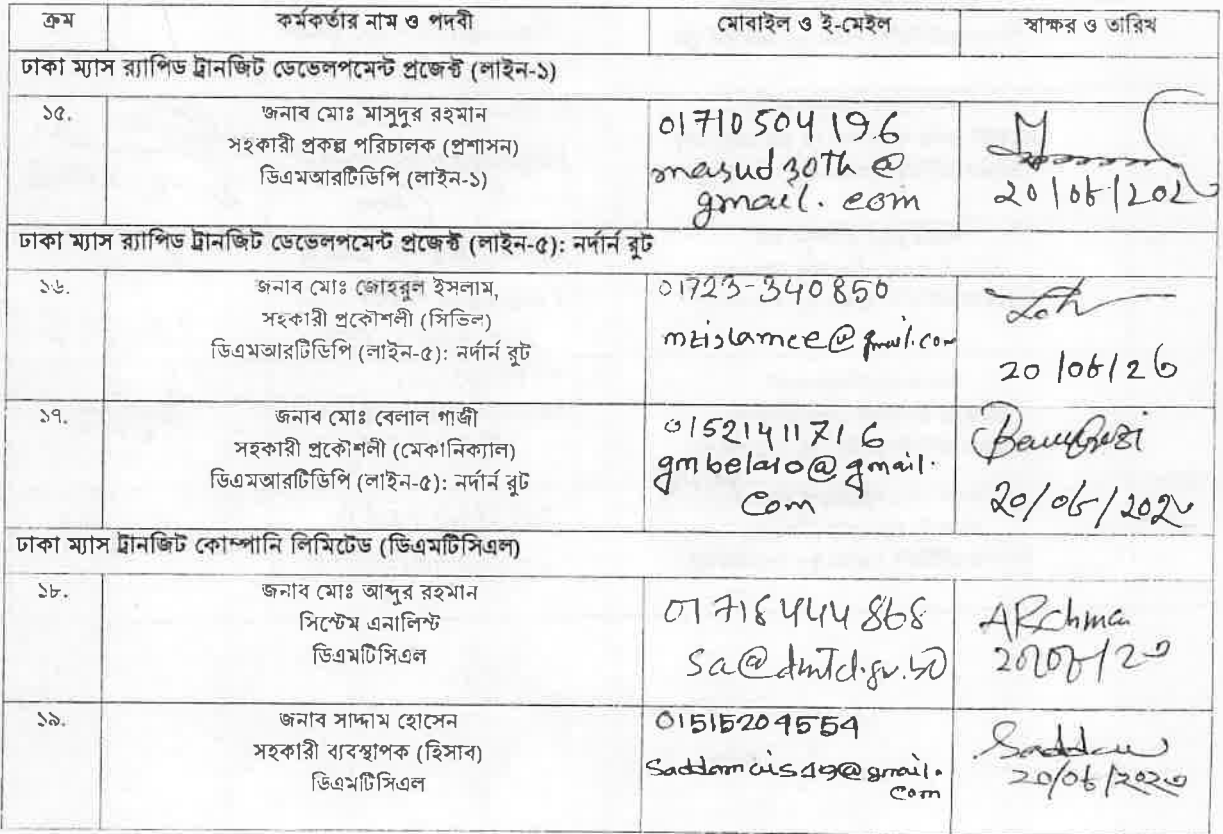 ক্রম কর্মকর্তার নাম ও পদবী মোবাইল ও ই-মেইল স্বাক্ষর ও তারিখ
ঢাকা ম্যাস র‍্যাপিড ট্রানজিট ডেভেলপমেন্ট প্রজেক্ট (লাইন-১)
১৫. জনাব মোঃ মাসুদুর রহমান
সহকারী প্রকল্প পরিচালক (প্রশাসন)
ডিএমআরটিডিপি (লাইন-১)
01710504196
masud30th@
gmail.com
ঢাকা ম্যাস র‍্যাপিড ট্রানজিট ডেভেলপমেন্ট প্রজেক্ট (লাইন-৫): নর্দার্ন রুট
১৬. জনাব মোঃ জোহরুল ইসলাম,
সহকারী প্রকৌশলী (সিভিল)
ডিএমআরটিডিপি (লাইন-৫): নর্দার্ন রুট
01723-340850
১৭. জনাব মোঃ বেলাল গাজী
সহকারী প্রকৌশলী (মেকানিক্যাল)
ডিএমআরটিডিপি (লাইন-৫): নর্দার্ন রুট
01521411716
@gmail.
com
ঢাকা ম্যাস ট্রানজিট কোম্পানি লিমিটেড (ডিএমটিসিএল)
১৮. জনাব মোঃ আব্দুর রহমান
সিস্টেম এনালিস্ট
ডিএমটিসিএল
01718444868
১৯. জনাব সাদ্দাম হোসেন
সহকারী ব্যবস্থাপক (হিসাব)
ডিএমটিসিএল
01515209554
saddamais49@gmail.
com
Saddam